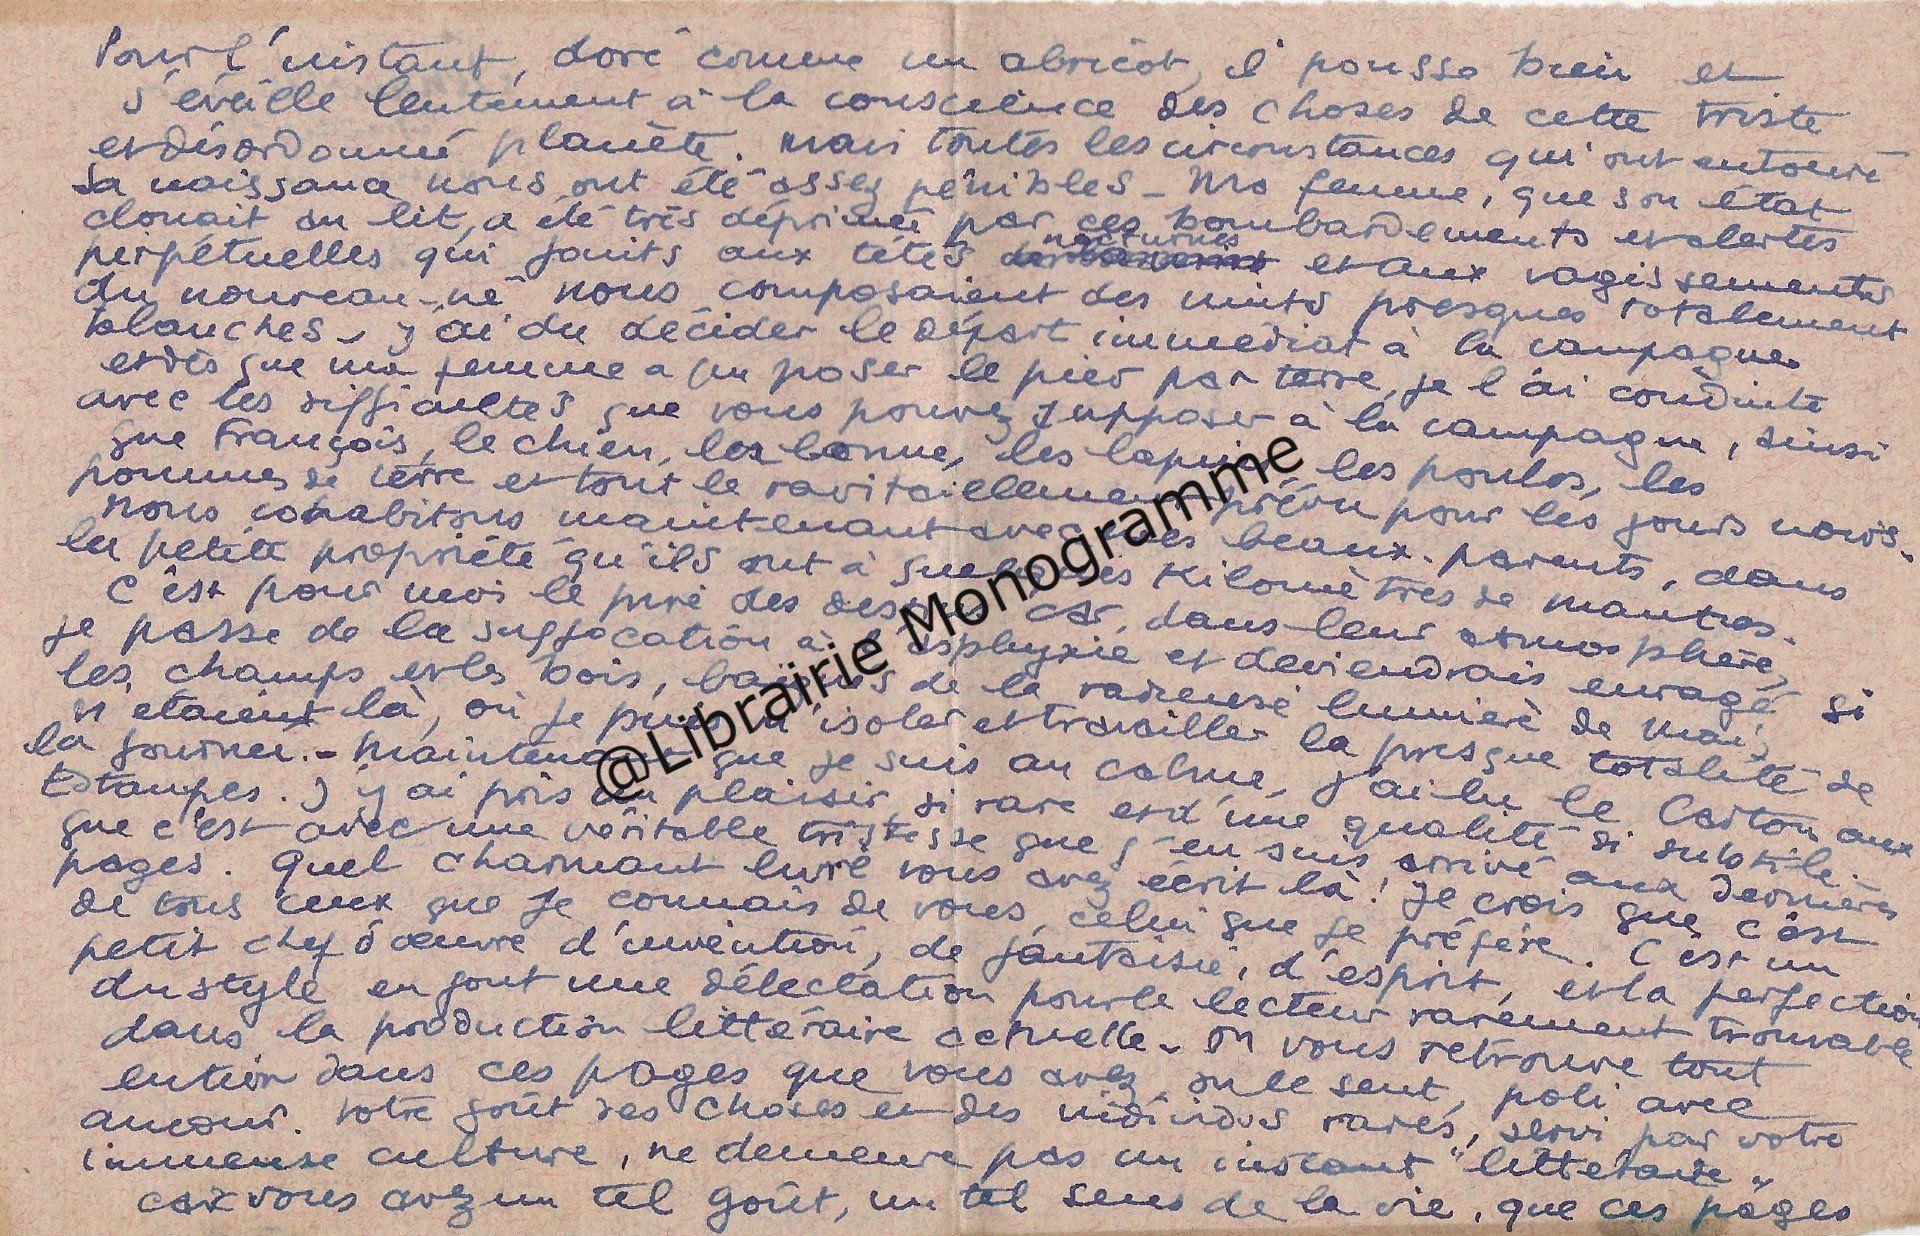 Pour l'instant, doré comme un abricot, il pousse bien et
s'éveille lentement à la conscience des choses de cette triste
et désordonnée planète. Mais toutes les circonstances qui ont entouré
sa naissance nous ont été assez pénibles - Ma femme, que son état
clouait au lit, a été très déprimée par ces bombardements et alertes
perpétuelles qui joints aux tétées nocturnes et aux vagissements
du nouveau-né nous composaient des nuits presques totalement
blanches - J'ai du décider le départ immédiat à la campagne
et dès que ma femme a pu poser le pied par terre, je l'ai conduite
avec les difficultés que vous pouvez supposer à la campagne, ainsi
que François, le chien, la bonne, les lapins, les poules, les
pommes de terre et tout le ravitaillement prévu pour les jours noirs.
Nous cohabitons maintenant avec mes beaux-parents, dans
la petite propriété qu'ils ont à quelques kilomètres de Mantes.
C'est pour moi le pire des car, dans leur atmosphère,
je passe de la suffocation à l'asphyxie et deviendrais enragé si
les champs et les bois, baignés de la radieuse lumière de mai,
n'étaient là, où je puis m'isoler et travailler la presque totalité de
la journée. - Maintenant que je suis au calme, j'ai lu le Carton aux
Estampes. J'y ai pris un plaisir si rare et d'une qualité si subtile
que c'est avec une véritable tristesse que j'en suis arrivé aux dernières
pages. Quel charmant livre vous avez écrit là! Je crois que c'est
de tous ceux que je connais de vous, celui que je préfère. C'est un
petit chef d'œuvre d'invention, de fantaisie, d'esprit, et la perfection
du style en font une délectation pour le lecteur rarement trouvable
dans la production littéraire actuelle - On vous retrouve tout
entier dans ces pages que vous avez, on le sent, poli avec
amour. Votre goût des choses et des individus rares, servi par votre
immense culture, ne demeure pas un instant "littéraire"
car vous avez un tel goût, un tel sens de la vie, que ces pages
@Librairie Monogramme